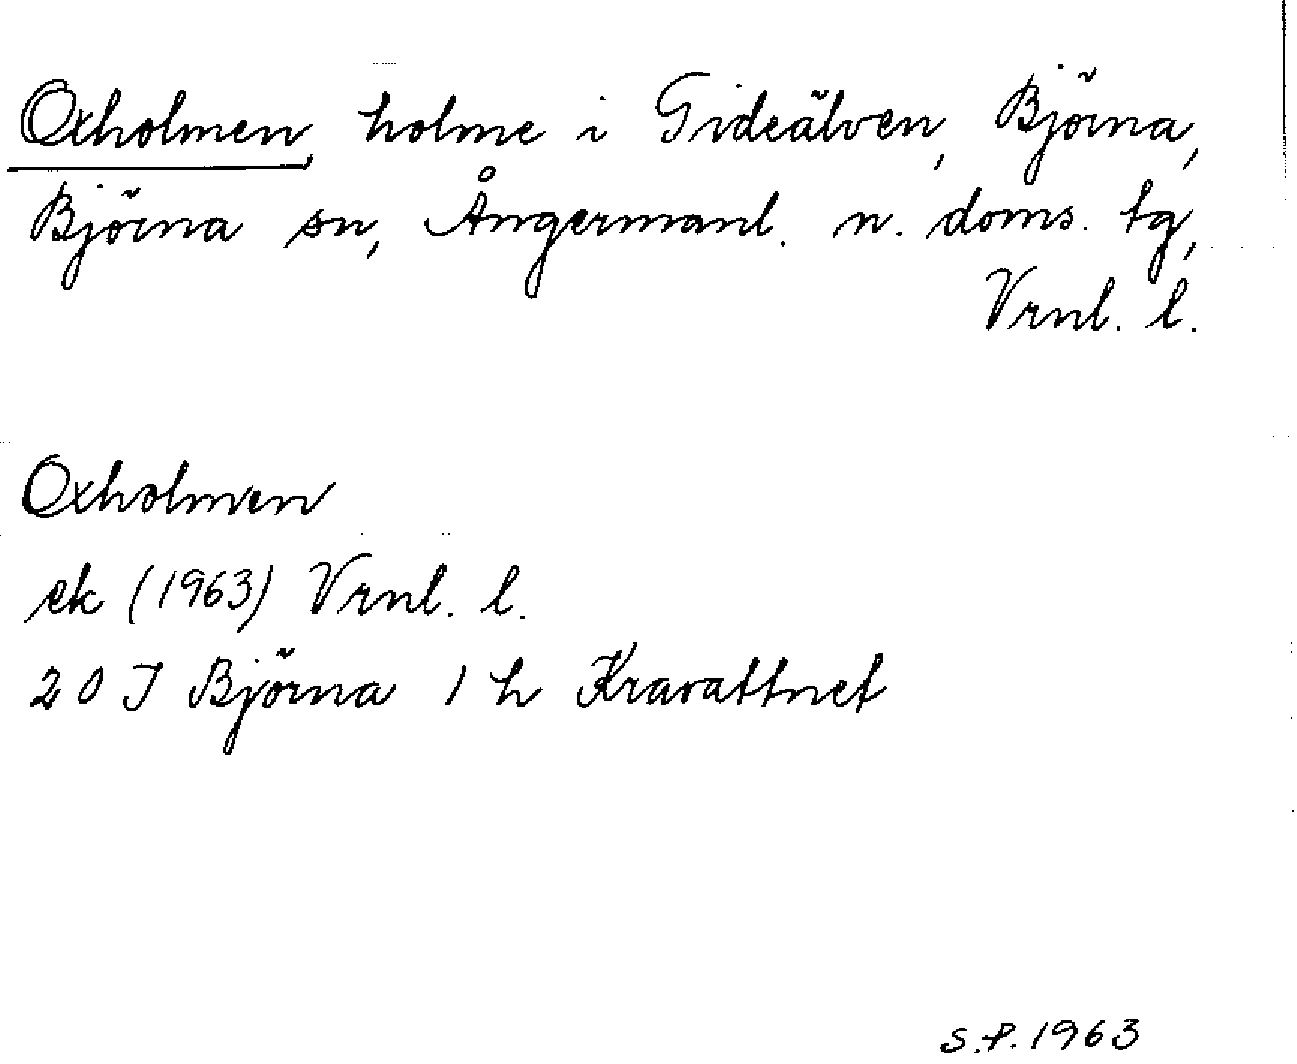 Oxholmen, holme i Gideälven, Björna,
Björna sn, Ångermanl. n. doms. tg,
Vrnl. l.
Oxholmen
ek (1963) Vrnl. l.
20 I Björna 1 h Kravattnet
S.P. 1963